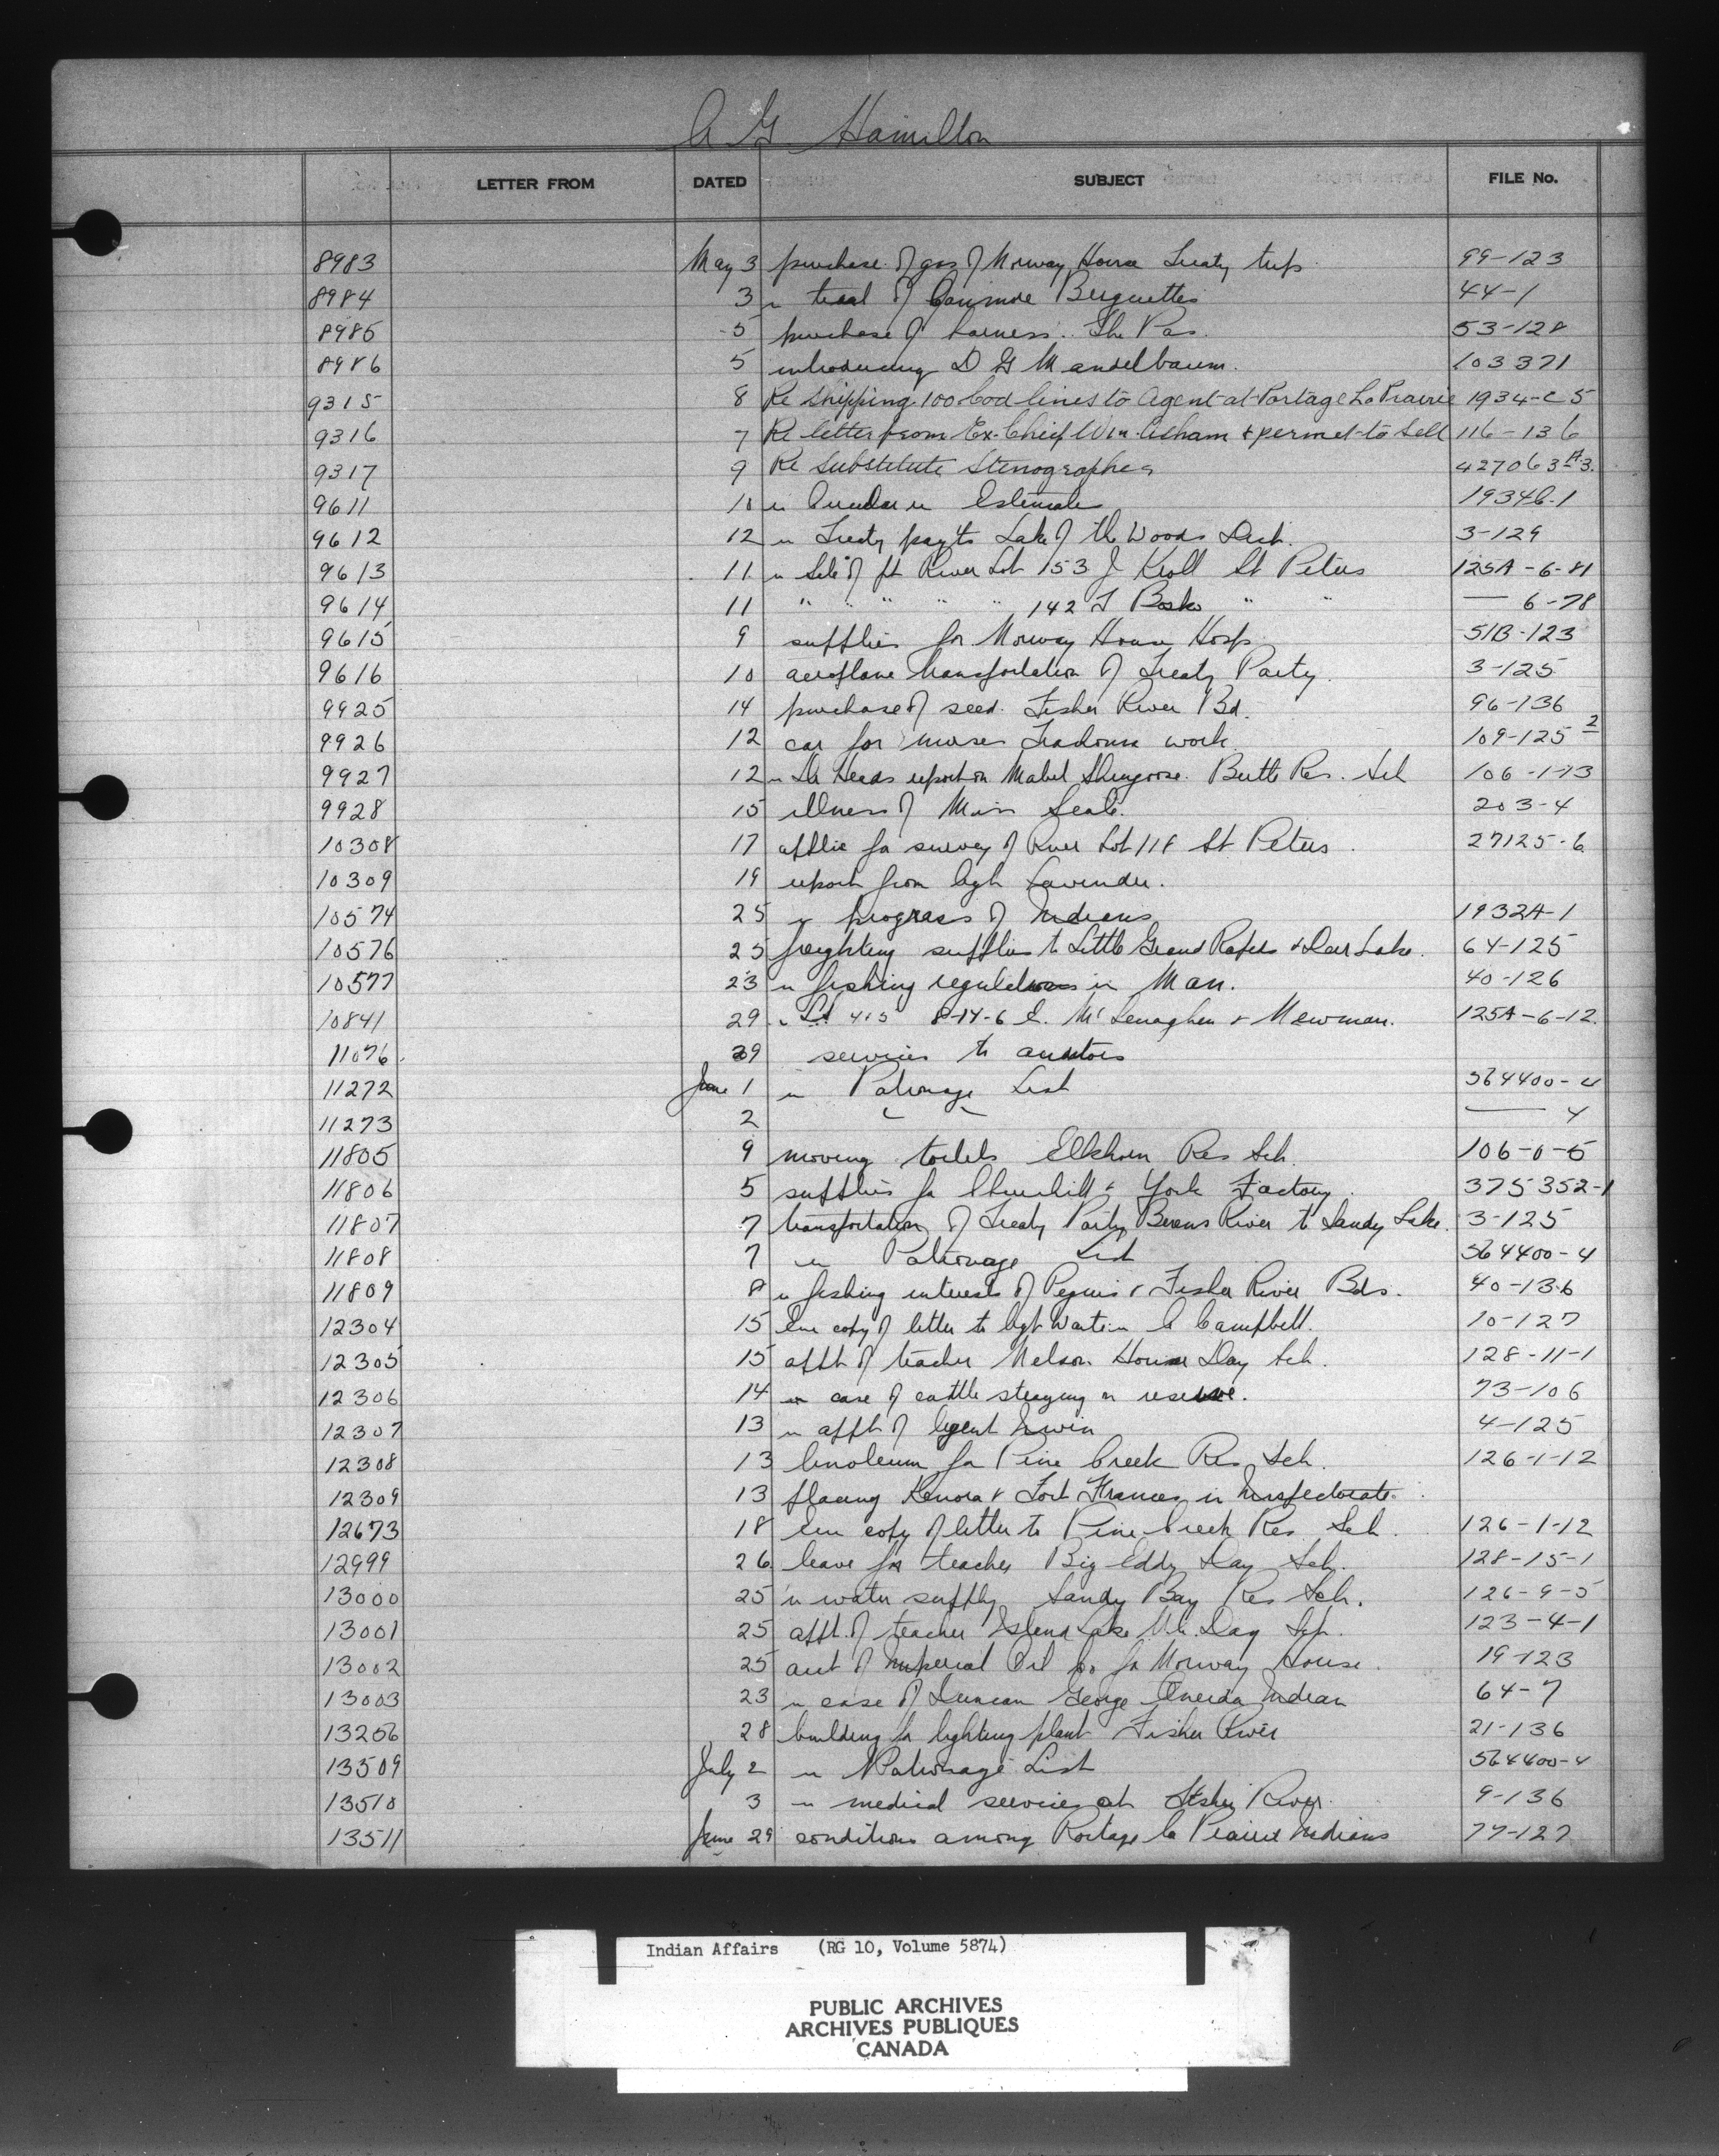 A G Hamilton
LETTER FROM DATED SUBJECT FILE No.
8983 May 3 purchase of gas of Norway House Treaty trip 99-123
8984 3 re trial of Berguettes 44-1
8985 5 purchase of harness. The Pas. 53-128
8986 5 introducing D G Mandelbaum. 103371
9315 8 Re Shipping 100 Cod lines to Agent at Portage La Prairie 1934-C5
9316 7 Re letter from Ex-Chief Wm Asham & permit to Sell 116-136
9317 9 Re Substitute Stenographer 427063-A.3.
9611 10 re Estimates
9612 12 re Treaty payts Lake of the Woods Dist. 3-129
9613 11 re Sale of pt River Lot 153 J Kroll St Peters 125A-6-81
9614 11 " " " " " 142 " " — 6-78
9615 9 supplies for Norway House Hosp 51B-123
9616 10 aeroplane transportation of Treaty Party. 3-125
9925 14 purchase of seed. Fisher River Bd. 96-136
9926 12 car for nurses work. 109-125 2
9927 12 re report on Mabel Shingoose. Birtle Res. Sch 106-1-13
9928 15 illness of Miss 203-4
10308 17 applic for survey of River Lot 118 St Peters. 27125-6
10309 19 report from Agt Lavender.
10574 25 re progress of Indians 1932A-1
10576 25 freighting supplies to Little Grand Rapids & Deer Lake. 64-125
10577 23 re fishing regulations in Man. 40-126
10841 29 re 8-14-6 E. McLenaghen & Newman. 125A-6-12.
11076 29 services to auditors
11272 June 1 re Patronage List 564400-4
11273 2 " " — 4
11805 9 moving toilets Elkhorn Res Sch. 106-0-5
11806 5 supplies for Churchill & York Factory. 375352-1
11807 7 transportation of Treaty Party Berens River to Sandy Lake. 3-125
11808 7 re Patronage List 564400-4
11809 8 re fishing interests of Peguis & Fisher River Bds. 40-136
12304 15 Enc copy of letter to Agt Waite re C Campbell. 10-127
12305 15 appt of teacher Nelson House Day Sch. 128-11-1
12306 14 re case of cattle straying on reserve. 73-106
12307 13 re appt of Agent 4-125
12308 13 linoleum for Pine Creek Res Sch. 126-1-12
12309 13 placing Kenora & Fort Frances in Inspectorate.
12673 18 Enc copy of letter to Pine Creek Res Sch. 126-1-12
12999 26 leave for teacher Big Eddy Day Sch. 128-15-1
13000 25 re water supply Sandy Bay Res Sch. 126-9-5
13001 25 appt. of teacher Island Lake Day Sch. 123-4-1
13002 25 acct of Imperial Oil Co for Norway House. 19-123
13003 23 re case of Duncan George Oneida Indian 64-7
13256 28 building for lighting plant Fisher River 21-136
13509 July 2 re Patronage List 564400-4
13510 3 re medical services at Fisher River. 9-136
13511 June 29 conditions among Portage la Prairie Indians 77-127
Indian Affairs (RG 10, Volume 5874)
PUBLIC ARCHIVES
ARCHIVES PUBLIQUES
CANADA